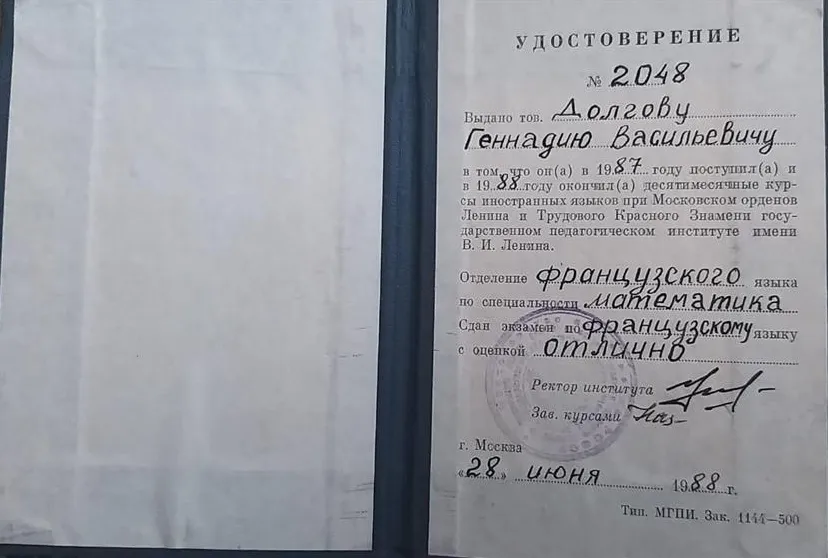 УДОСТОВЕРЕНИЕ
№ 2048
Выдано тов. Долгову
Геннадию Васильевичу
в том, что он(а) в 1987 году поступил(а) и
в 1988 году окончил(а) десятимесячные кур-
сы иностранных языков при Московском орденов
Ленина и Трудового Красного Знамени госу-
дарственном педагогическом институте имени
В. И. Ленина.
Отделение французского языка
по специальности математика
Сдан экзамен по французскому языку
с оценкой отлично
Ректор института
Зав. курсами
г. Москва
«28» июня 1988 г.
Тип. МГПИ. Зак. 1144—500